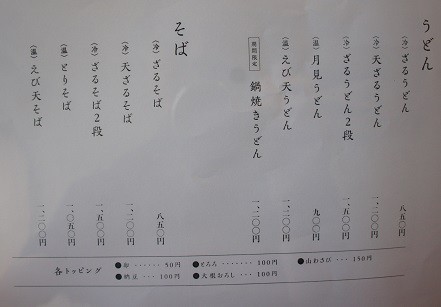 うどん
（冷）ざるうどん 八五〇円
（冷）天ざるうどん 一、二〇〇円
（冷）ざるうどん２段 一、五〇〇円
（温）月見うどん 九〇〇円
（温）えび天うどん 一、二〇〇円
期間限定 鍋焼きうどん 一、二〇〇円
そば
（冷）ざるそば 八五〇円
（冷）天ざるそば 一、二〇〇円
（冷）ざるそば２段 一、五〇〇円
（温）とりそば 一、〇五〇円
（温）えび天そば 一、二〇〇円
各トッピング
●卵 ･･････ 50円 ●とろろ ･･･････ 100円 ●山わさび ･･･ 150円
●納豆 ･･･ 100円 ●大根おろし ･･･ 100円